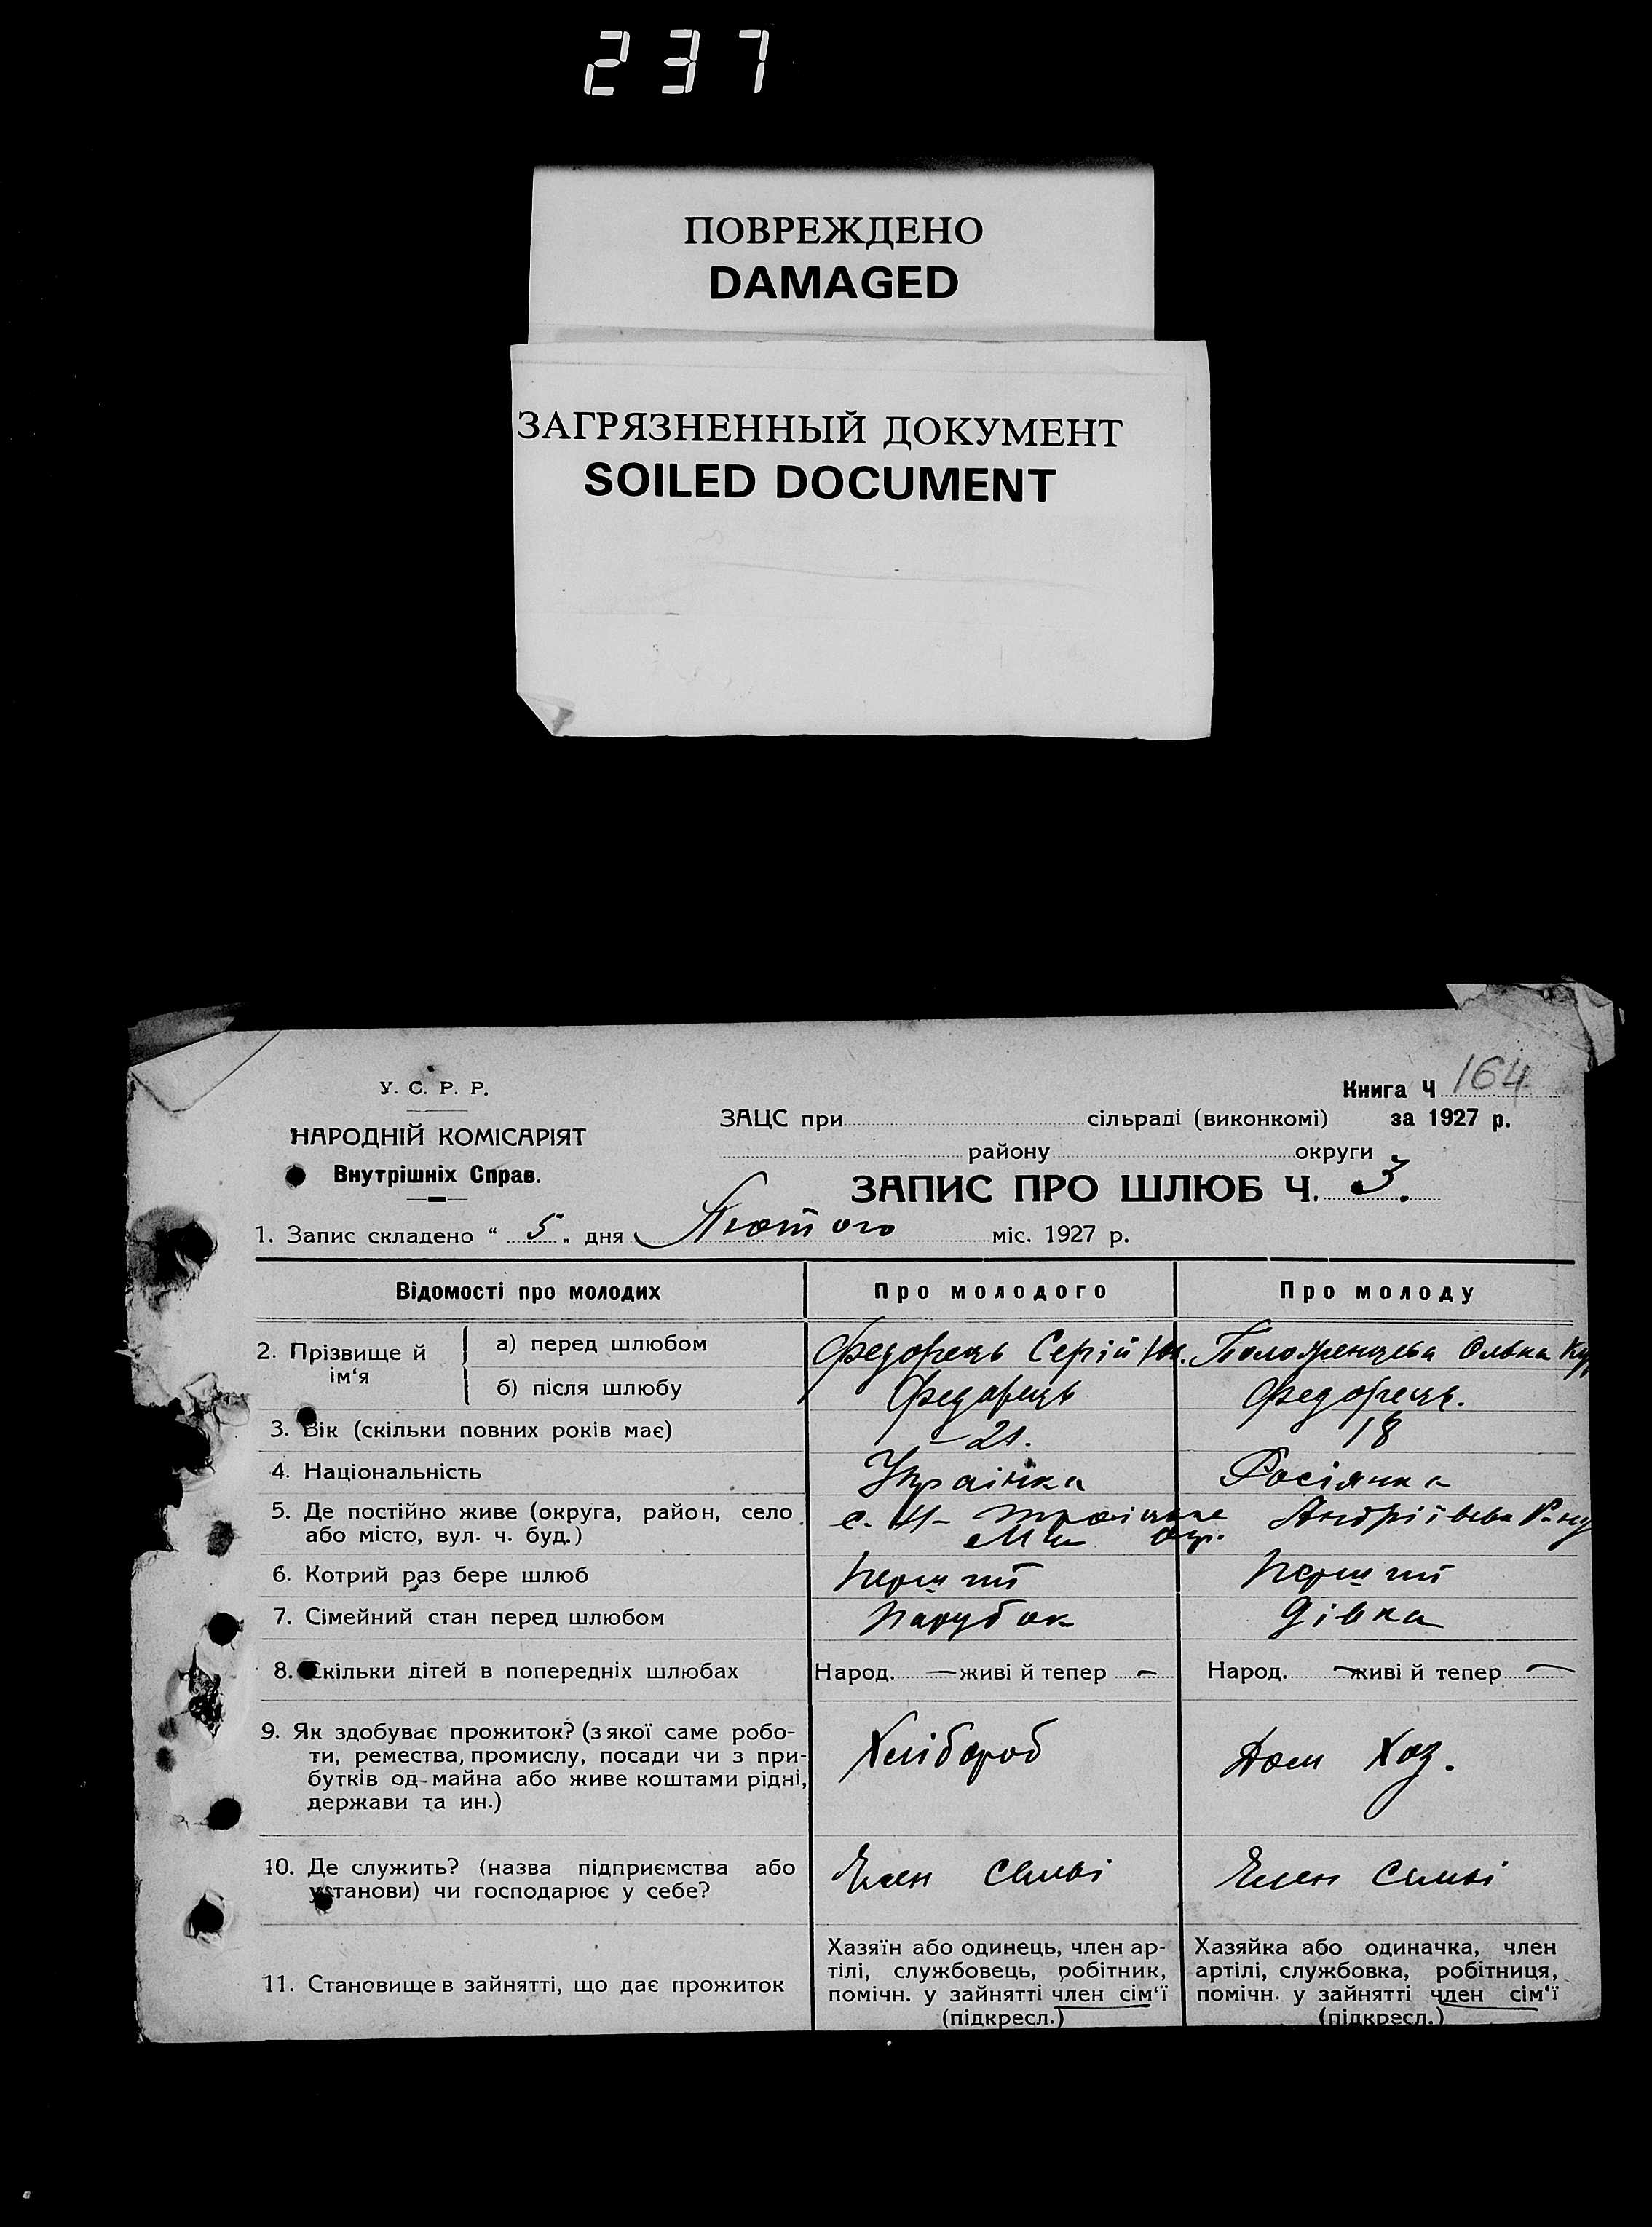 237
ПОВРЕЖДЕНО
DAMAGED
ЗАГРЯЗНЕННЫЙ ДОКУМЕНТ
SOILED DOCUMENT
У. С. Р. Р.
НАРОДНІЙ КОМІСАРІЯТ
Внутрішніх Справ.
Книга Ч 164
ЗАЦС при сільраді (виконкомі) за 1927 р.
району округи
ЗАПИС ПРО ШЛЮБ Ч. 3.
1. Запис складено “ 5 „ дня Лютого міс. 1927 р.
Відомості про молодих Про молодого Про молоду
2. Прізвище й ім‘я
а) перед шлюбом Федорець Сергій Ольга
б) після шлюбу Федорець Федорець.
3. Вік (скільки повних років має) 21. 18
4. Національність Українка Росіянка
5. Де постійно живе (округа, район, село
або місто, вул. ч. буд.) с. Н- окр.
6. Котрий раз бере шлюб Перший Перший
7. Сімейний стан перед шлюбом Парубок Дівка
8. Скільки дітей в попередніх шлюбах Народ. — живі й тепер — Народ. — живі й тепер —
9. Як здобуває прожиток? (з якої саме робо-
ти, ремества, промислу, посади чи з при-
бутків од майна або живе коштами рідні,
держави та ин.)
Хлібороб Дом Хоз.
10. Де служить? (назва підприємства або
установи) чи господарює у себе?
Член семьі Член семьі
11. Становище в зайнятті, що дає прожиток
Хазяїн або одинець, член ар-
тілі, службовець, робітник,
помічн. у зайнятті член сім‘ї
(підкресл.)
Хазяйка або одиначка, член
артілі, службовка, робітниця,
помічн. у зайнятті член сім‘ї
(підкресл.)